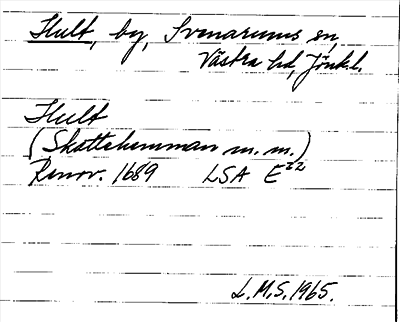 Hult, by, Svenarums sn,
Västra hd, Jönk.l.
Hult
(Skattehemman m.m.)
Renov. 1689 LSA E22
L.M.S. 1965.